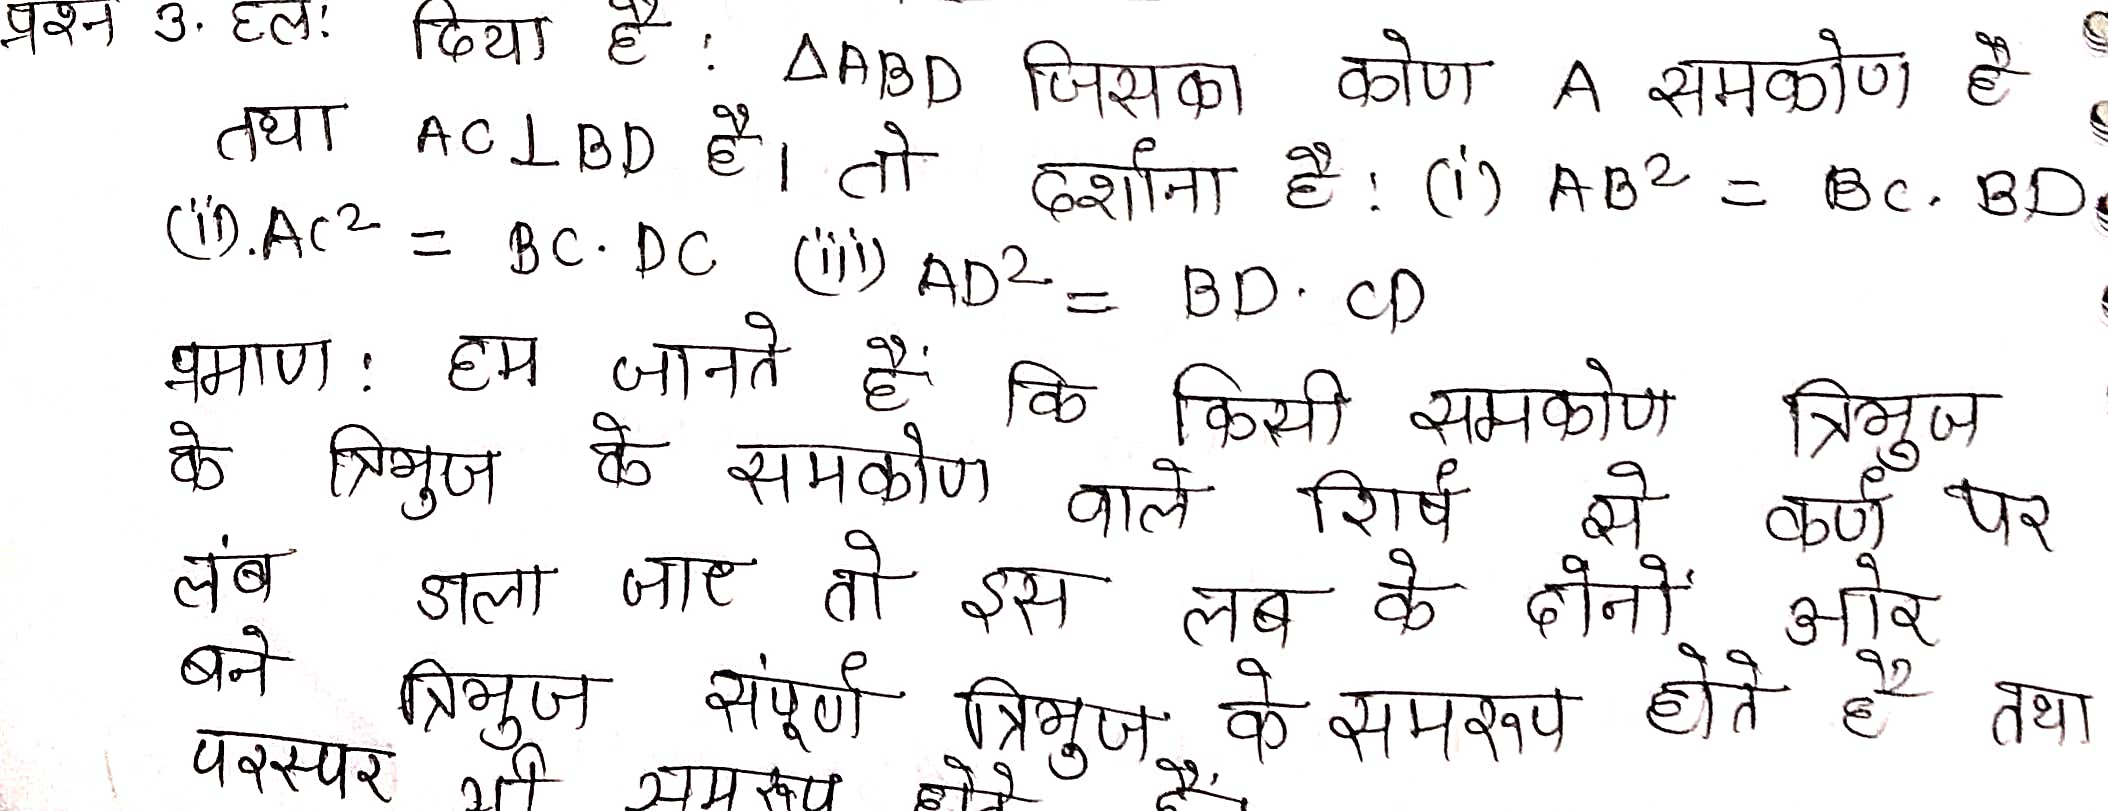 प्रश्न 3. हल: दिया है : ΔABD जिसका कोण A समकोण है
तथा AC⊥BD है। तो दर्शाना है : (i) AB² = BC. BD
(ii). AC² = BC. DC (iii) AD² = BD. CD
प्रमाण : हम जानते हैं कि किसी समकोण त्रिभुज
के त्रिभुज के समकोण वाले शिर्ष से कर्ण पर
लंब डाला जाए तो इस लब के दोनों ओर
बने त्रिभुज संपूर्ण त्रिभुज के समरूप होते है तथा
परस्पर भी समरूप होते हैं